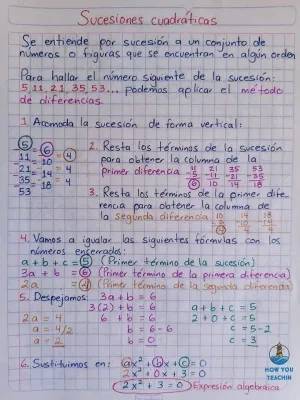 Sucesiones cuadráticas
Se entiende por sucesión a un conjunto de
números o figuras que se encuentran en algún orden
Para hallar el número siguiente de la sucesión:
5, 11, 21, 35, 53... podemos aplicar el método
de diferencias.
1. Acomoda la sucesión de forma vertical:
5 = 6
11 = 10 = 4
21 = 14 = 4
35 = 18 = 4
53
2. Resta los términos de la sucesión
para obtener la columna de la
primer diferencia
11 21 35 53
-5 -11 -21 -35
6 10 14 18
3. Resta los términos de la primer dife-
rencia para obtener la columna de
la segunda diferencia
10 14 18
-6 -10 -14
4 4 4
4. Vamos a igualar las siguientes fórmulas con los
números encerrados:
a + b + c = 5 (Primer término de la sucesión)
3a + b = 6 (Primer término de la primera diferencia)
2a = 4 (Primer término de la segunda diferencia)
5. Despejamos:
2a = 4
a = 4/2
a = 2
3a + b = 6
3(2) + b = 6
6 + b = 6
b = 6-6
b = 0
a + b + c = 5
2 + 0 + c = 5
c = 5-2
c = 3
6. Sustituimos en: ax² + bx + c = 0
2x² + 0x + 3 = 0
2x² + 3 = 0 Expresión algebraica
HOW YOU
TEACHIN